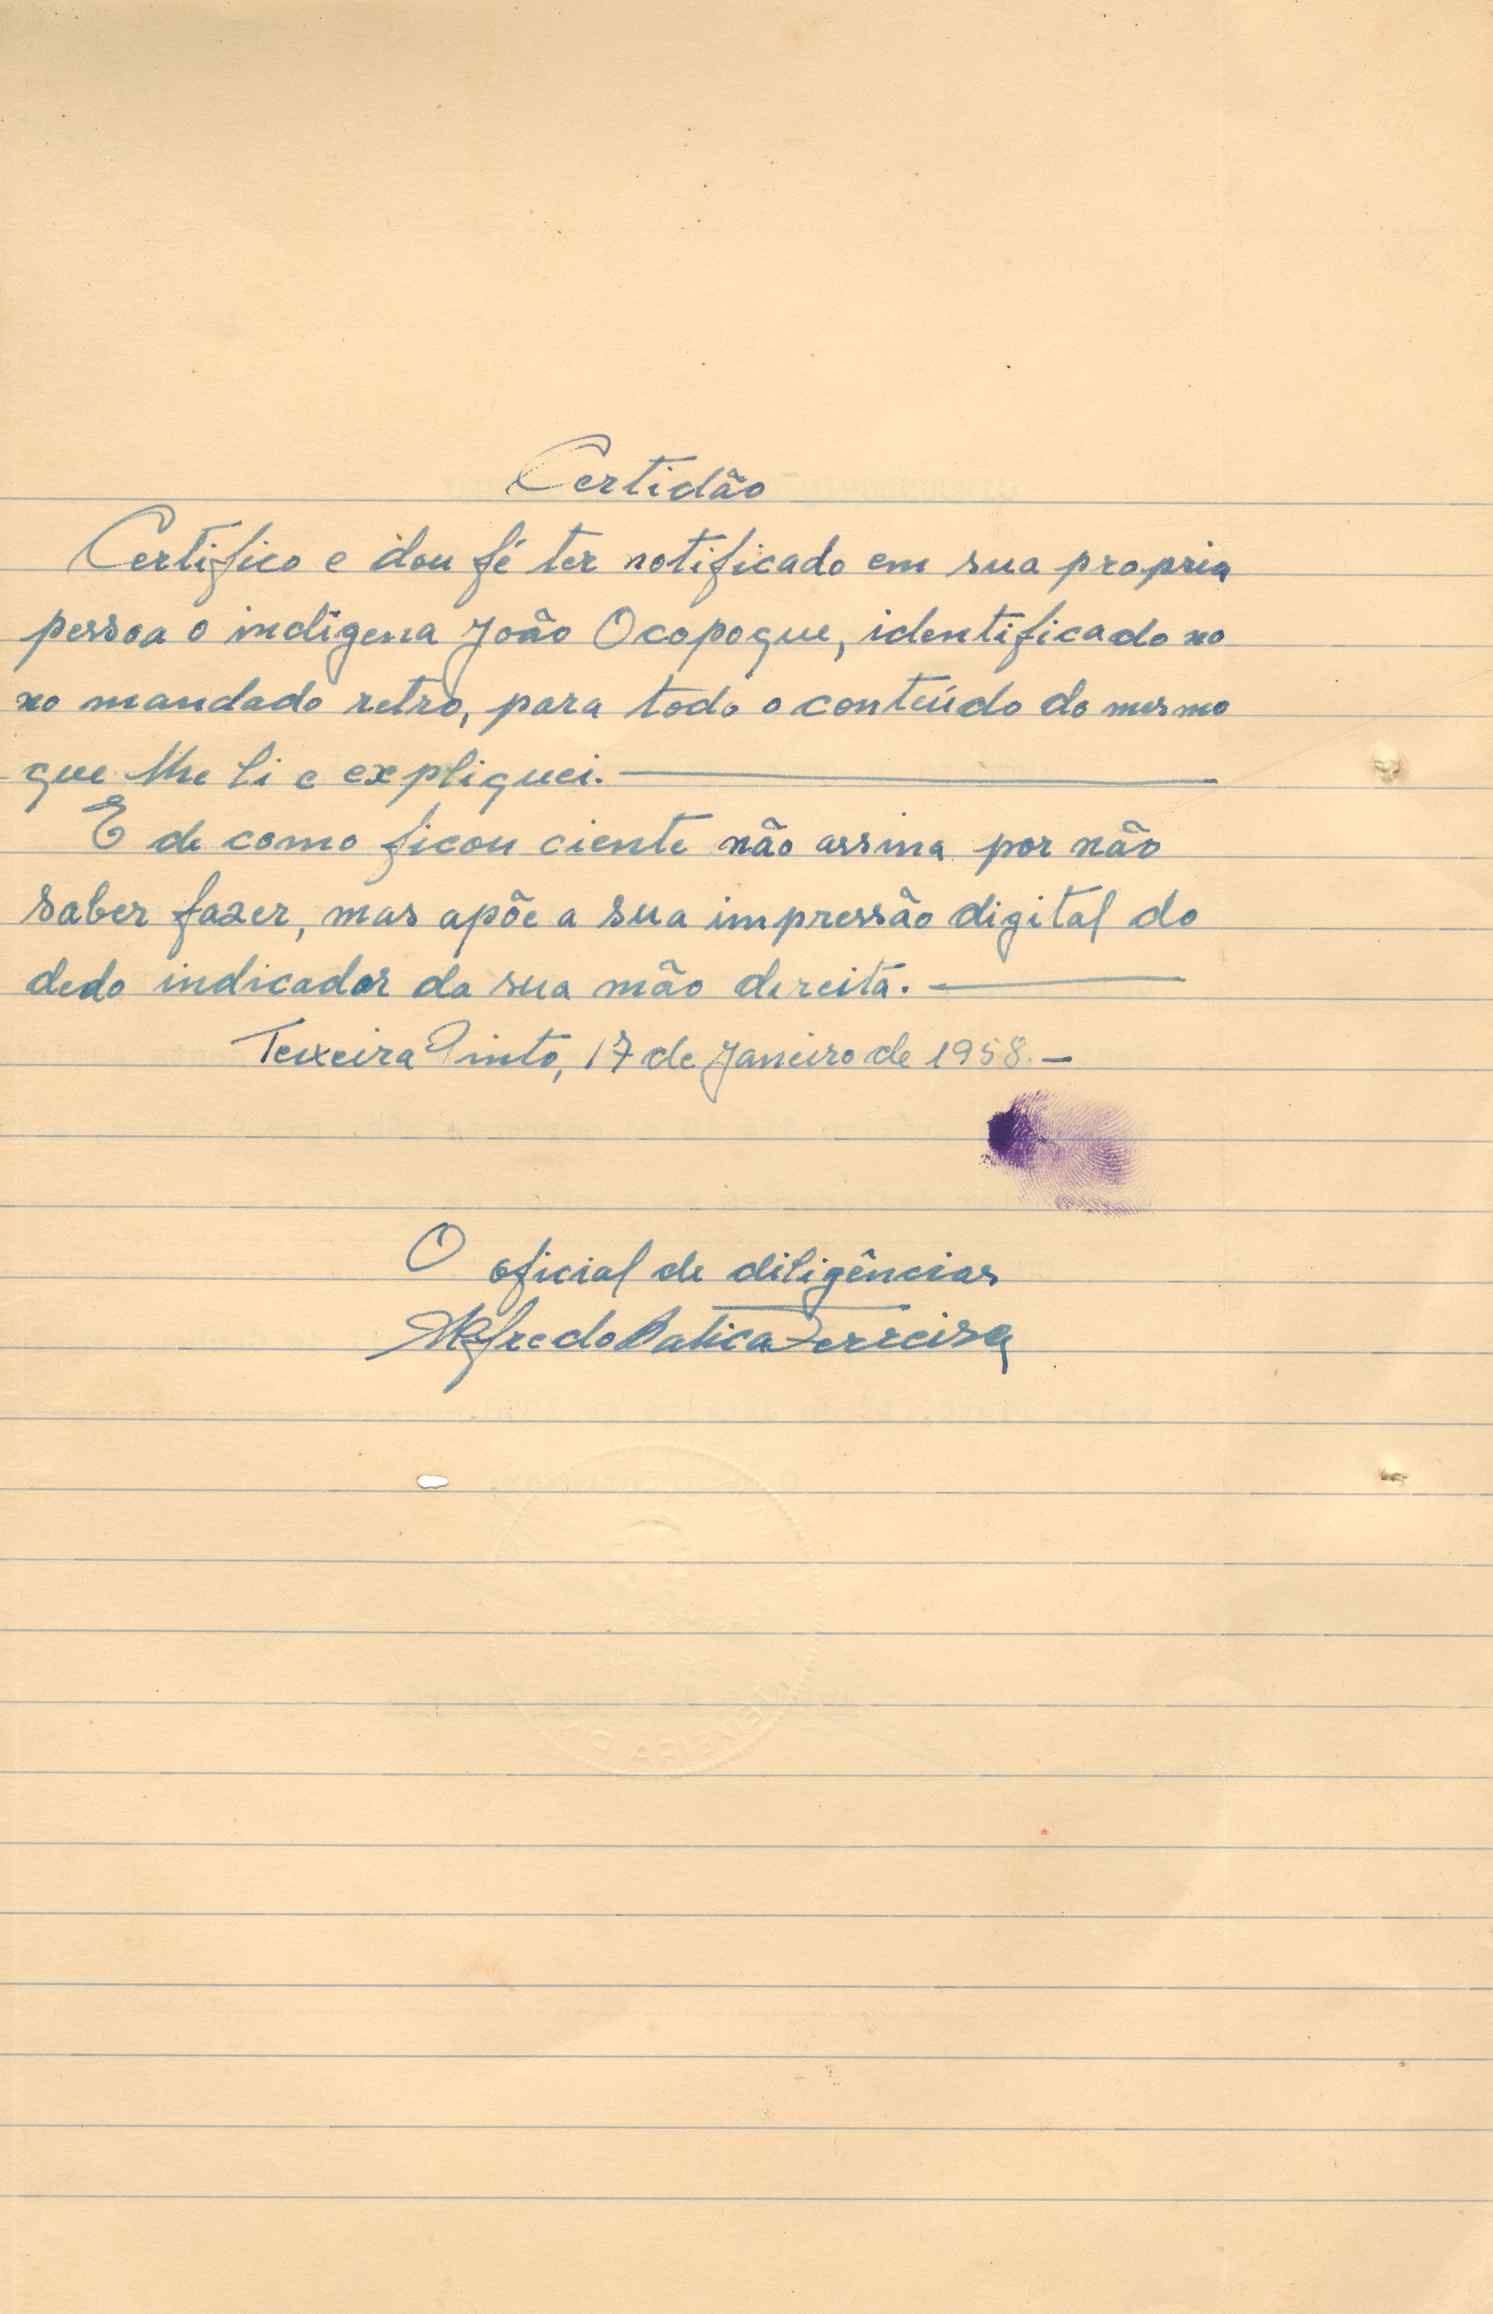 Certidão
Certifico e dou fé ter notificado em sua propria
pessoa o indígena João Ocopoque, identificado no
no mandado retro, para todo o conteúdo do mesmo
que lhe li e expliquei.
E de como ficou ciente não assina por não
saber fazer, mas apõe a sua impressão digital do
dedo indicador da sua mão direita.
Teixeira Pinto, 17 de Janeiro de 1958. —
O oficial de diligências
Alfredo Batica Ferreira
TEIXEIRA